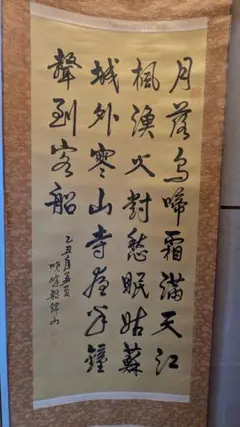 月落烏啼霜滿天江
楓漁火對愁眠姑蘇
城外寒山寺夜半鐘
聲到客船
乙丑